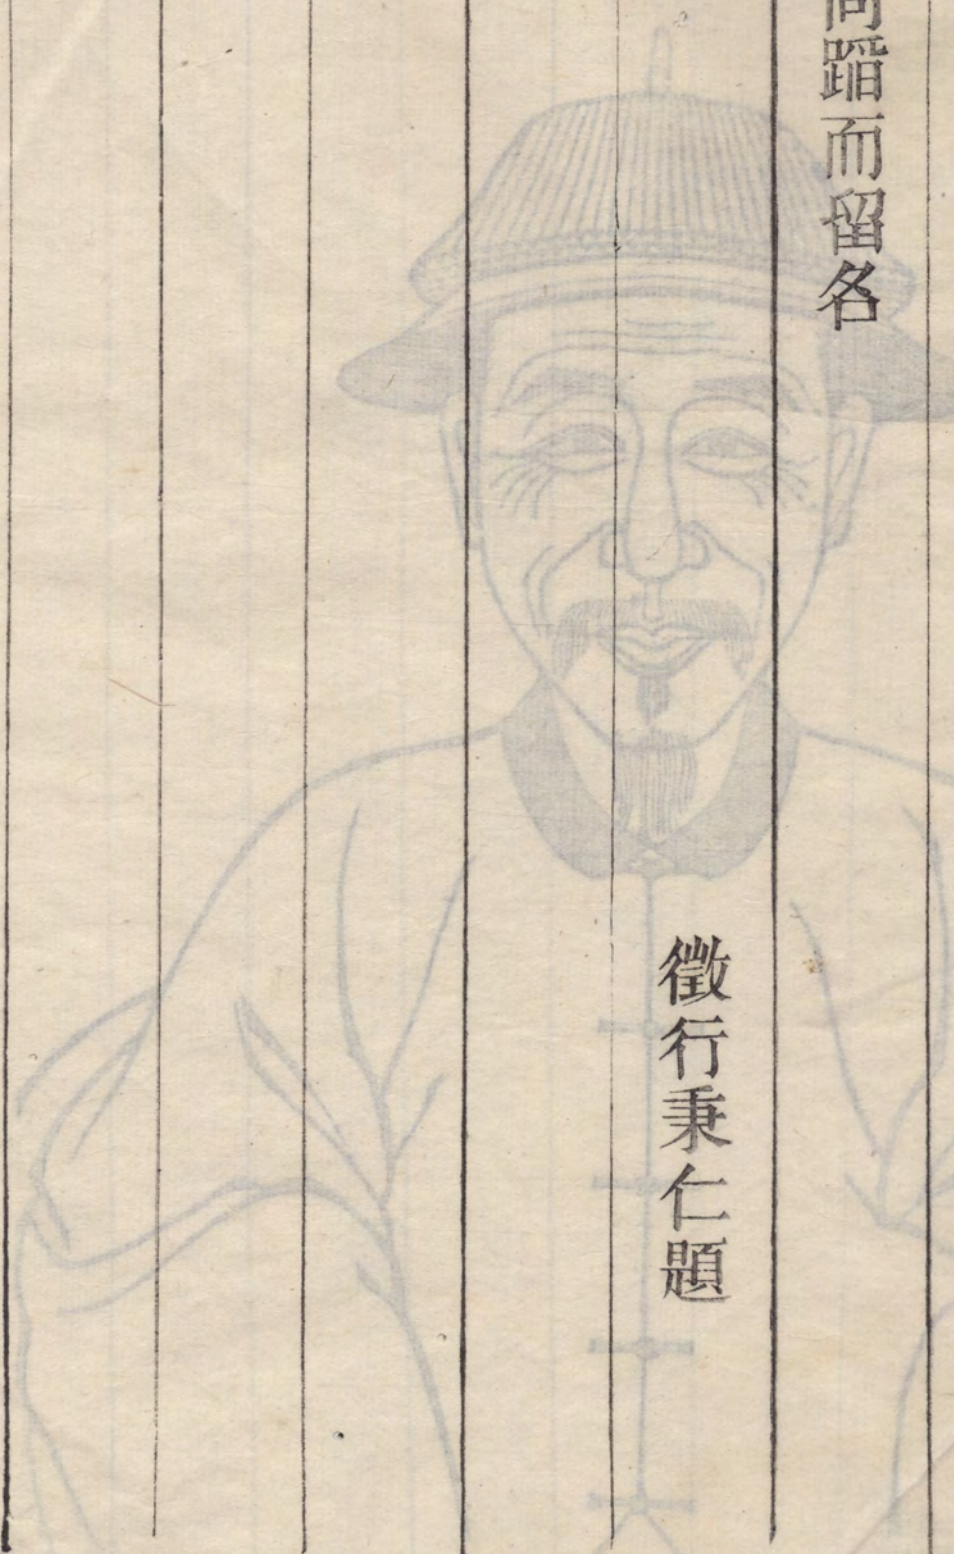 蹈而留各
徵行秉仁題